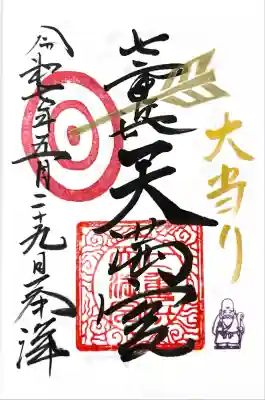 大当り
天満宮
令和七年五月二十九日奉拝